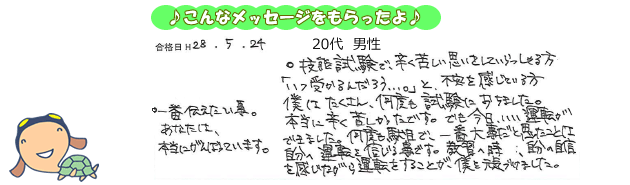 ♪こんなメッセージをもらったよ♪
合格日 H28.5.24
20代 男性
○技能試験で、辛く苦しい思いをしていらっしゃる方
「いつ受かるんだろう…。」と、不安を感じている方
僕はたくさん、何度も試験におちました。
本当に辛く苦しかったです。でも今日、、、、、運転が
できました。何度も駄目で、一番大事だと思ったことは
自分の運転を信じる事です。教習の時、自分の自信
を感じながら運転をすることが僕を援けました。
○一番伝えたい事。
あなたは、
本当にがんばっています。